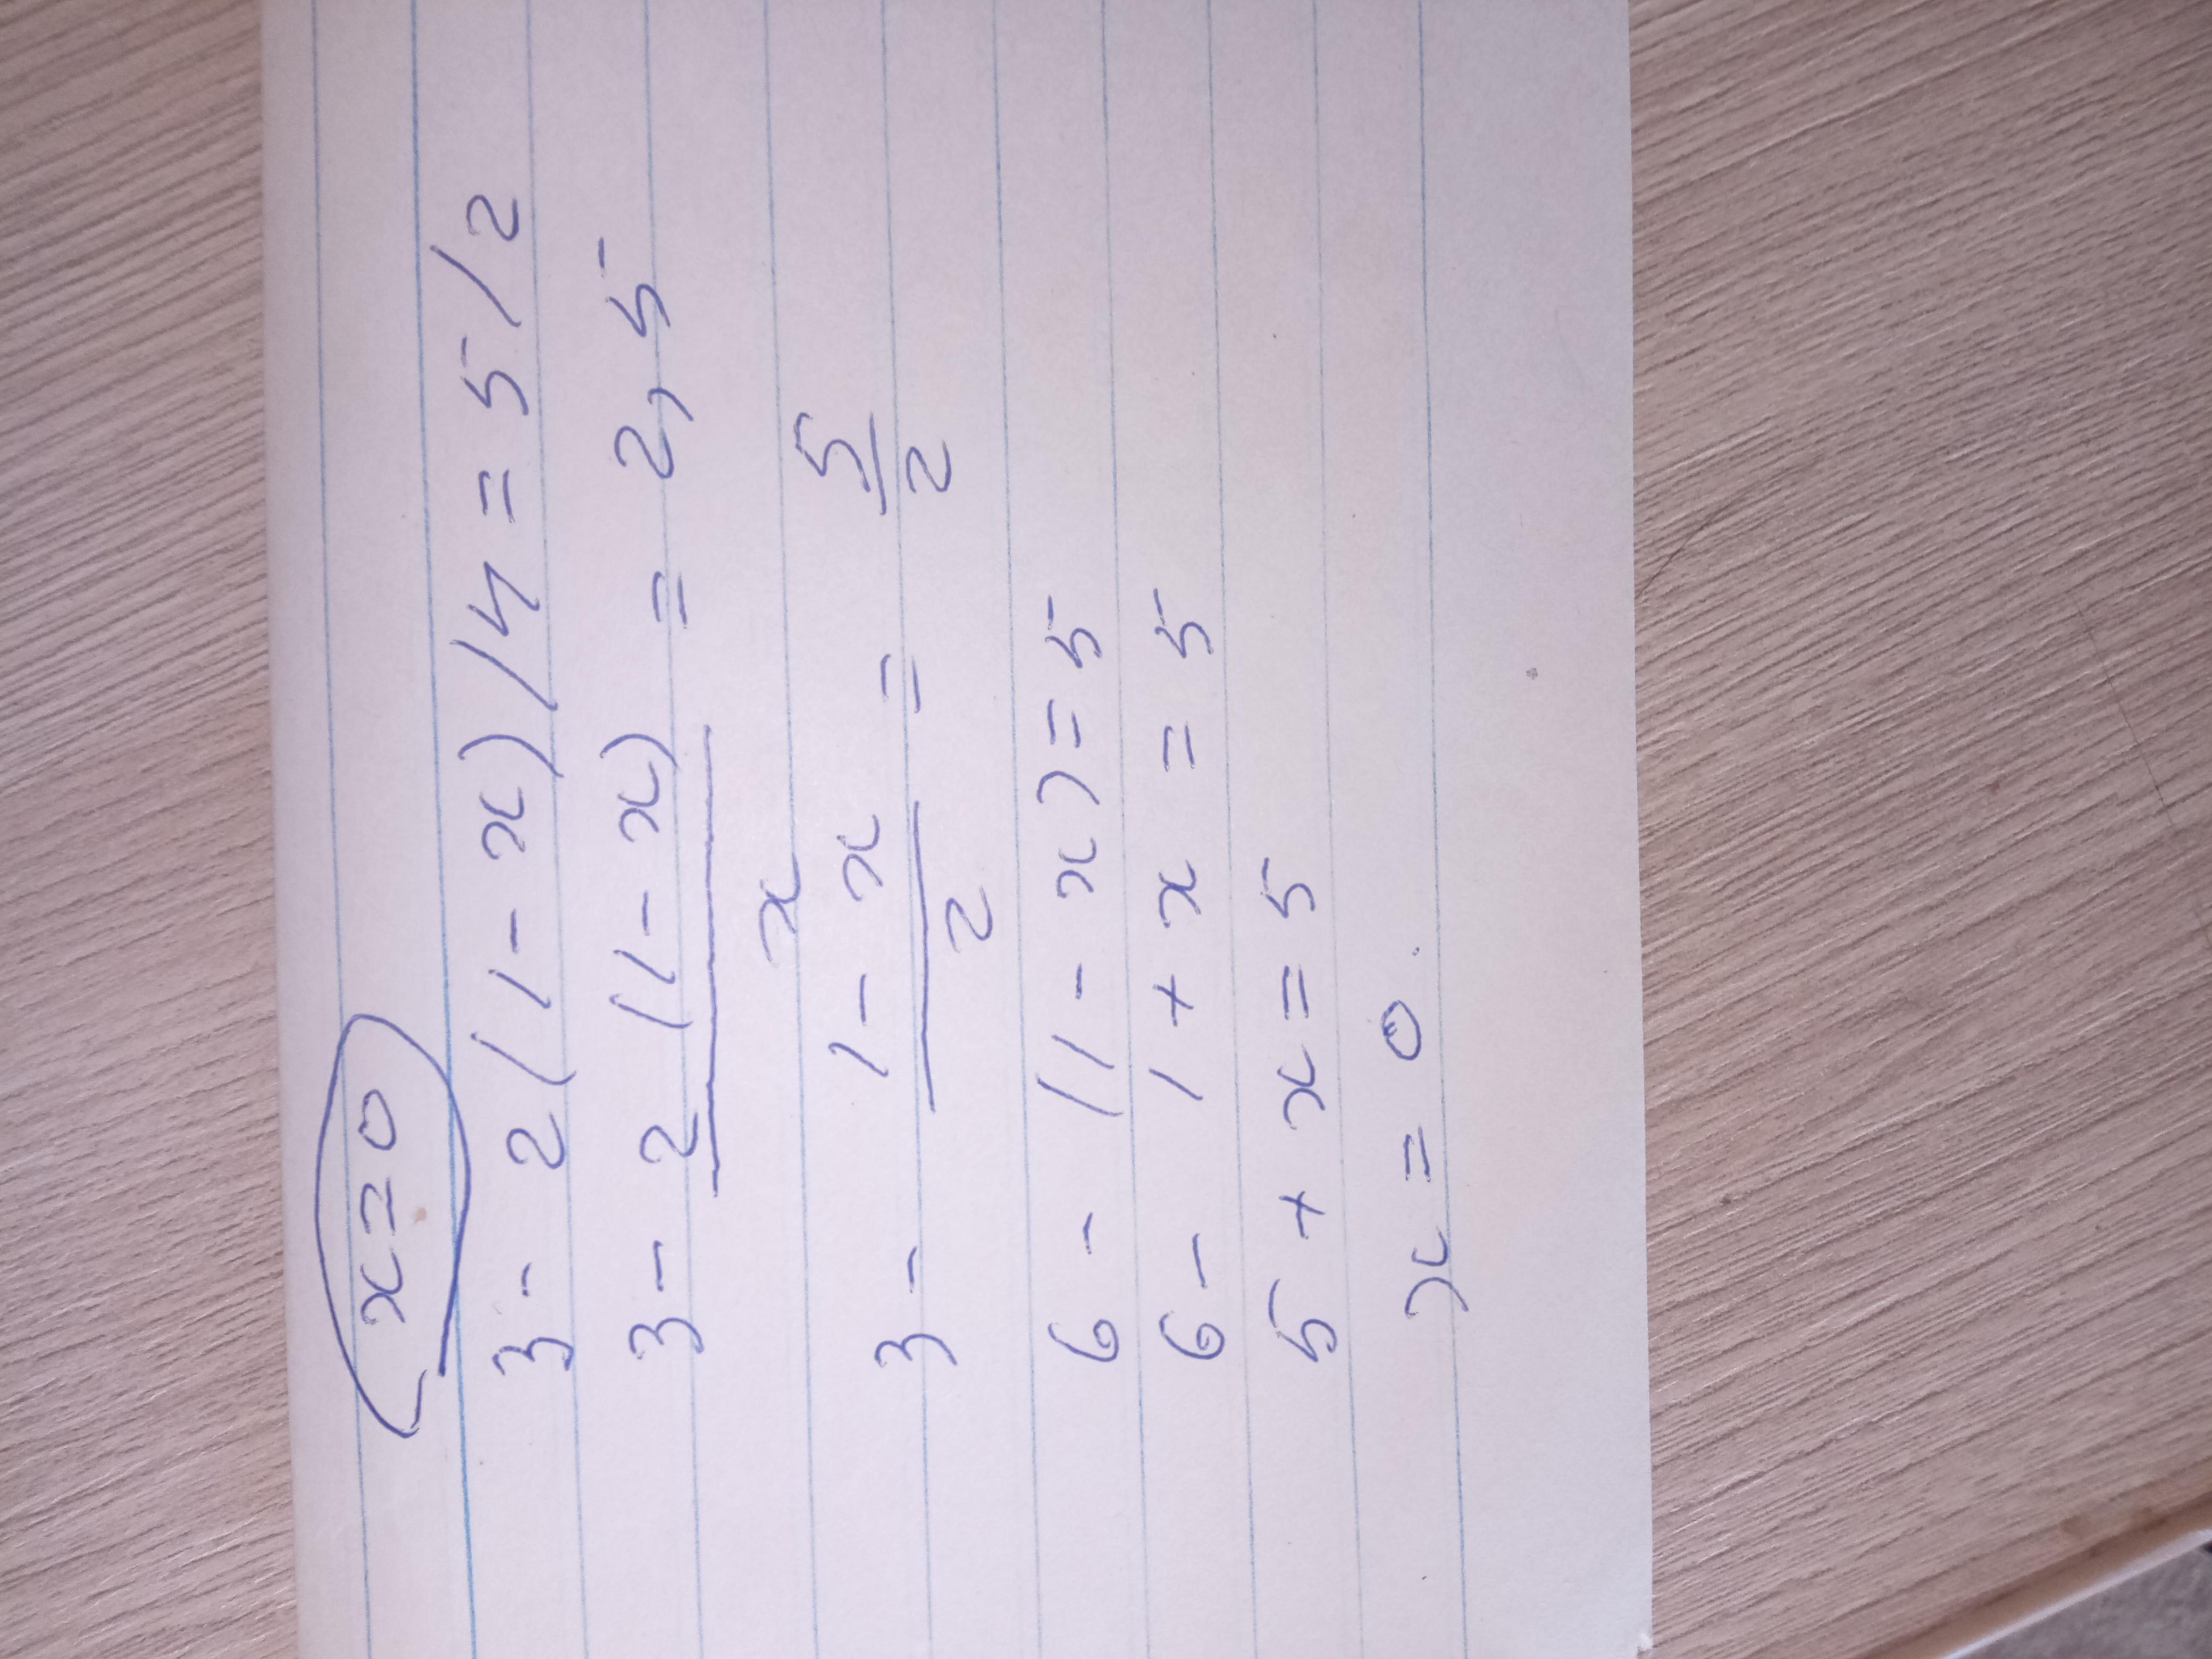 x=0
3-2(1-x)/4=5/2
3-2(1-x)/x=2,5
3-(1-x)/2=5/2
6-(1-x)=5
6-1+x=5
5+x=5
x=0.